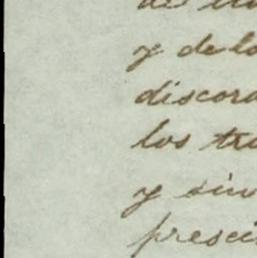 y de lo
discord
los tra
y sin
presci